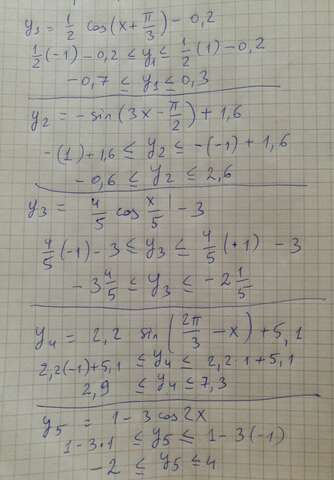 y₁ = 1/2 cos(x + π/3) - 0,2
1/2(-1) - 0,2 ≤ y₁ ≤ 1/2(1) - 0,2
-0,7 ≤ y₁ ≤ 0,3
y₂ = -sin(3x - π/2) + 1,6
-(1) + 1,6 ≤ y₂ ≤ -(-1) + 1,6
-0,6 ≤ y₂ ≤ 2,6
y₃ = 4/5 cos x/5 - 3
4/5(-1) - 3 ≤ y₃ ≤ 4/5(+1) - 3
-3 4/5 ≤ y₃ ≤ -2 1/5
y₄ = 2,2 sin(2π/3 - x) + 5,1
2,2(-1) + 5,1 ≤ y₄ ≤ 2,2·1 + 5,1
2,9 ≤ y₄ ≤ 7,3
y₅ = 1 - 3 cos 2x
1 - 3·1 ≤ y₅ ≤ 1 - 3(-1)
-2 ≤ y₅ ≤ 4